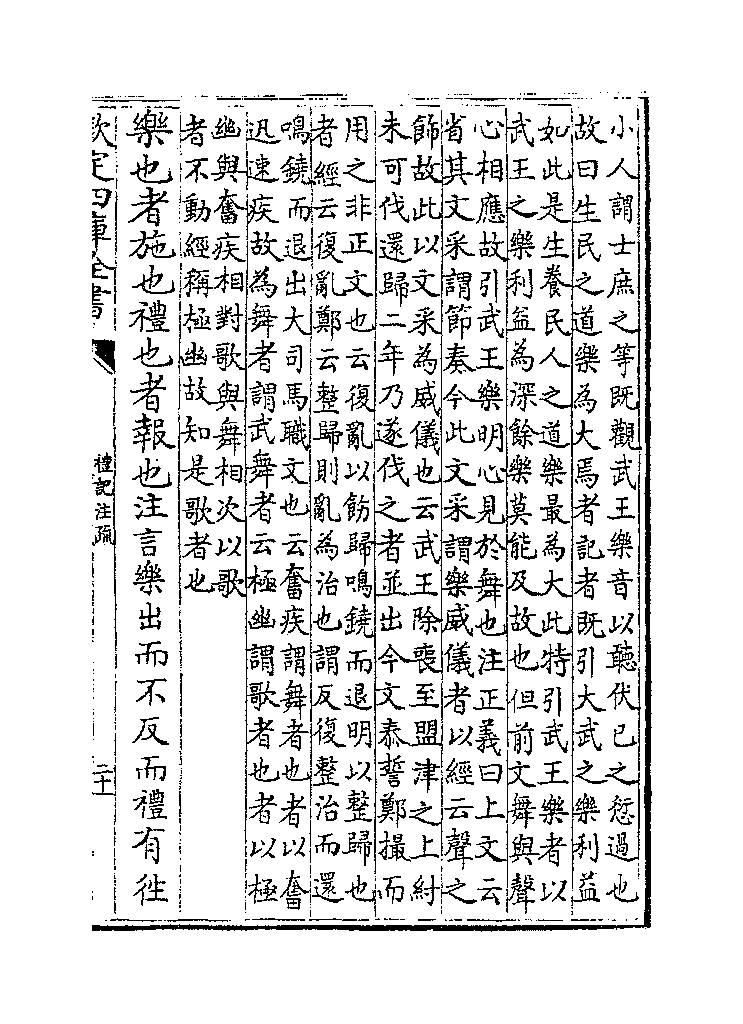 小人謂士庶之等既觀武王樂音以聽伏己之愆過也
故曰生民之道樂為大焉者記者既引大武之樂利益
如此是生養民人之道樂最為大此特引武王樂者以
武王之樂利益為深餘樂莫能及故也但前文舞與聲
心相應故引武王樂明心見於舞也注正義曰上文云
省其文采謂節奏今此文采謂樂威儀者以經云聲之
飾故此以文采為威儀也云武王除喪至盟津之上紂
未可伐還歸二年乃遂伐之者並出今文泰誓鄭撮而
用之非正文也云復亂以飭歸鳴鐃而退明以整歸也
者經云復亂鄭云整歸則亂為治也謂反復整治而還
鳴鐃而退出大司馬職文也云奮疾謂舞者也者以奮
迅速疾故為舞者謂武舞者云極幽謂歌者也者以極
幽與奮疾相對歌與舞相次以歌
者不動經稱極幽故知是歌者也
樂也者施也禮也者報也注言樂出而不反而禮有徃
欽定四庫全書
禮記注疏
二十